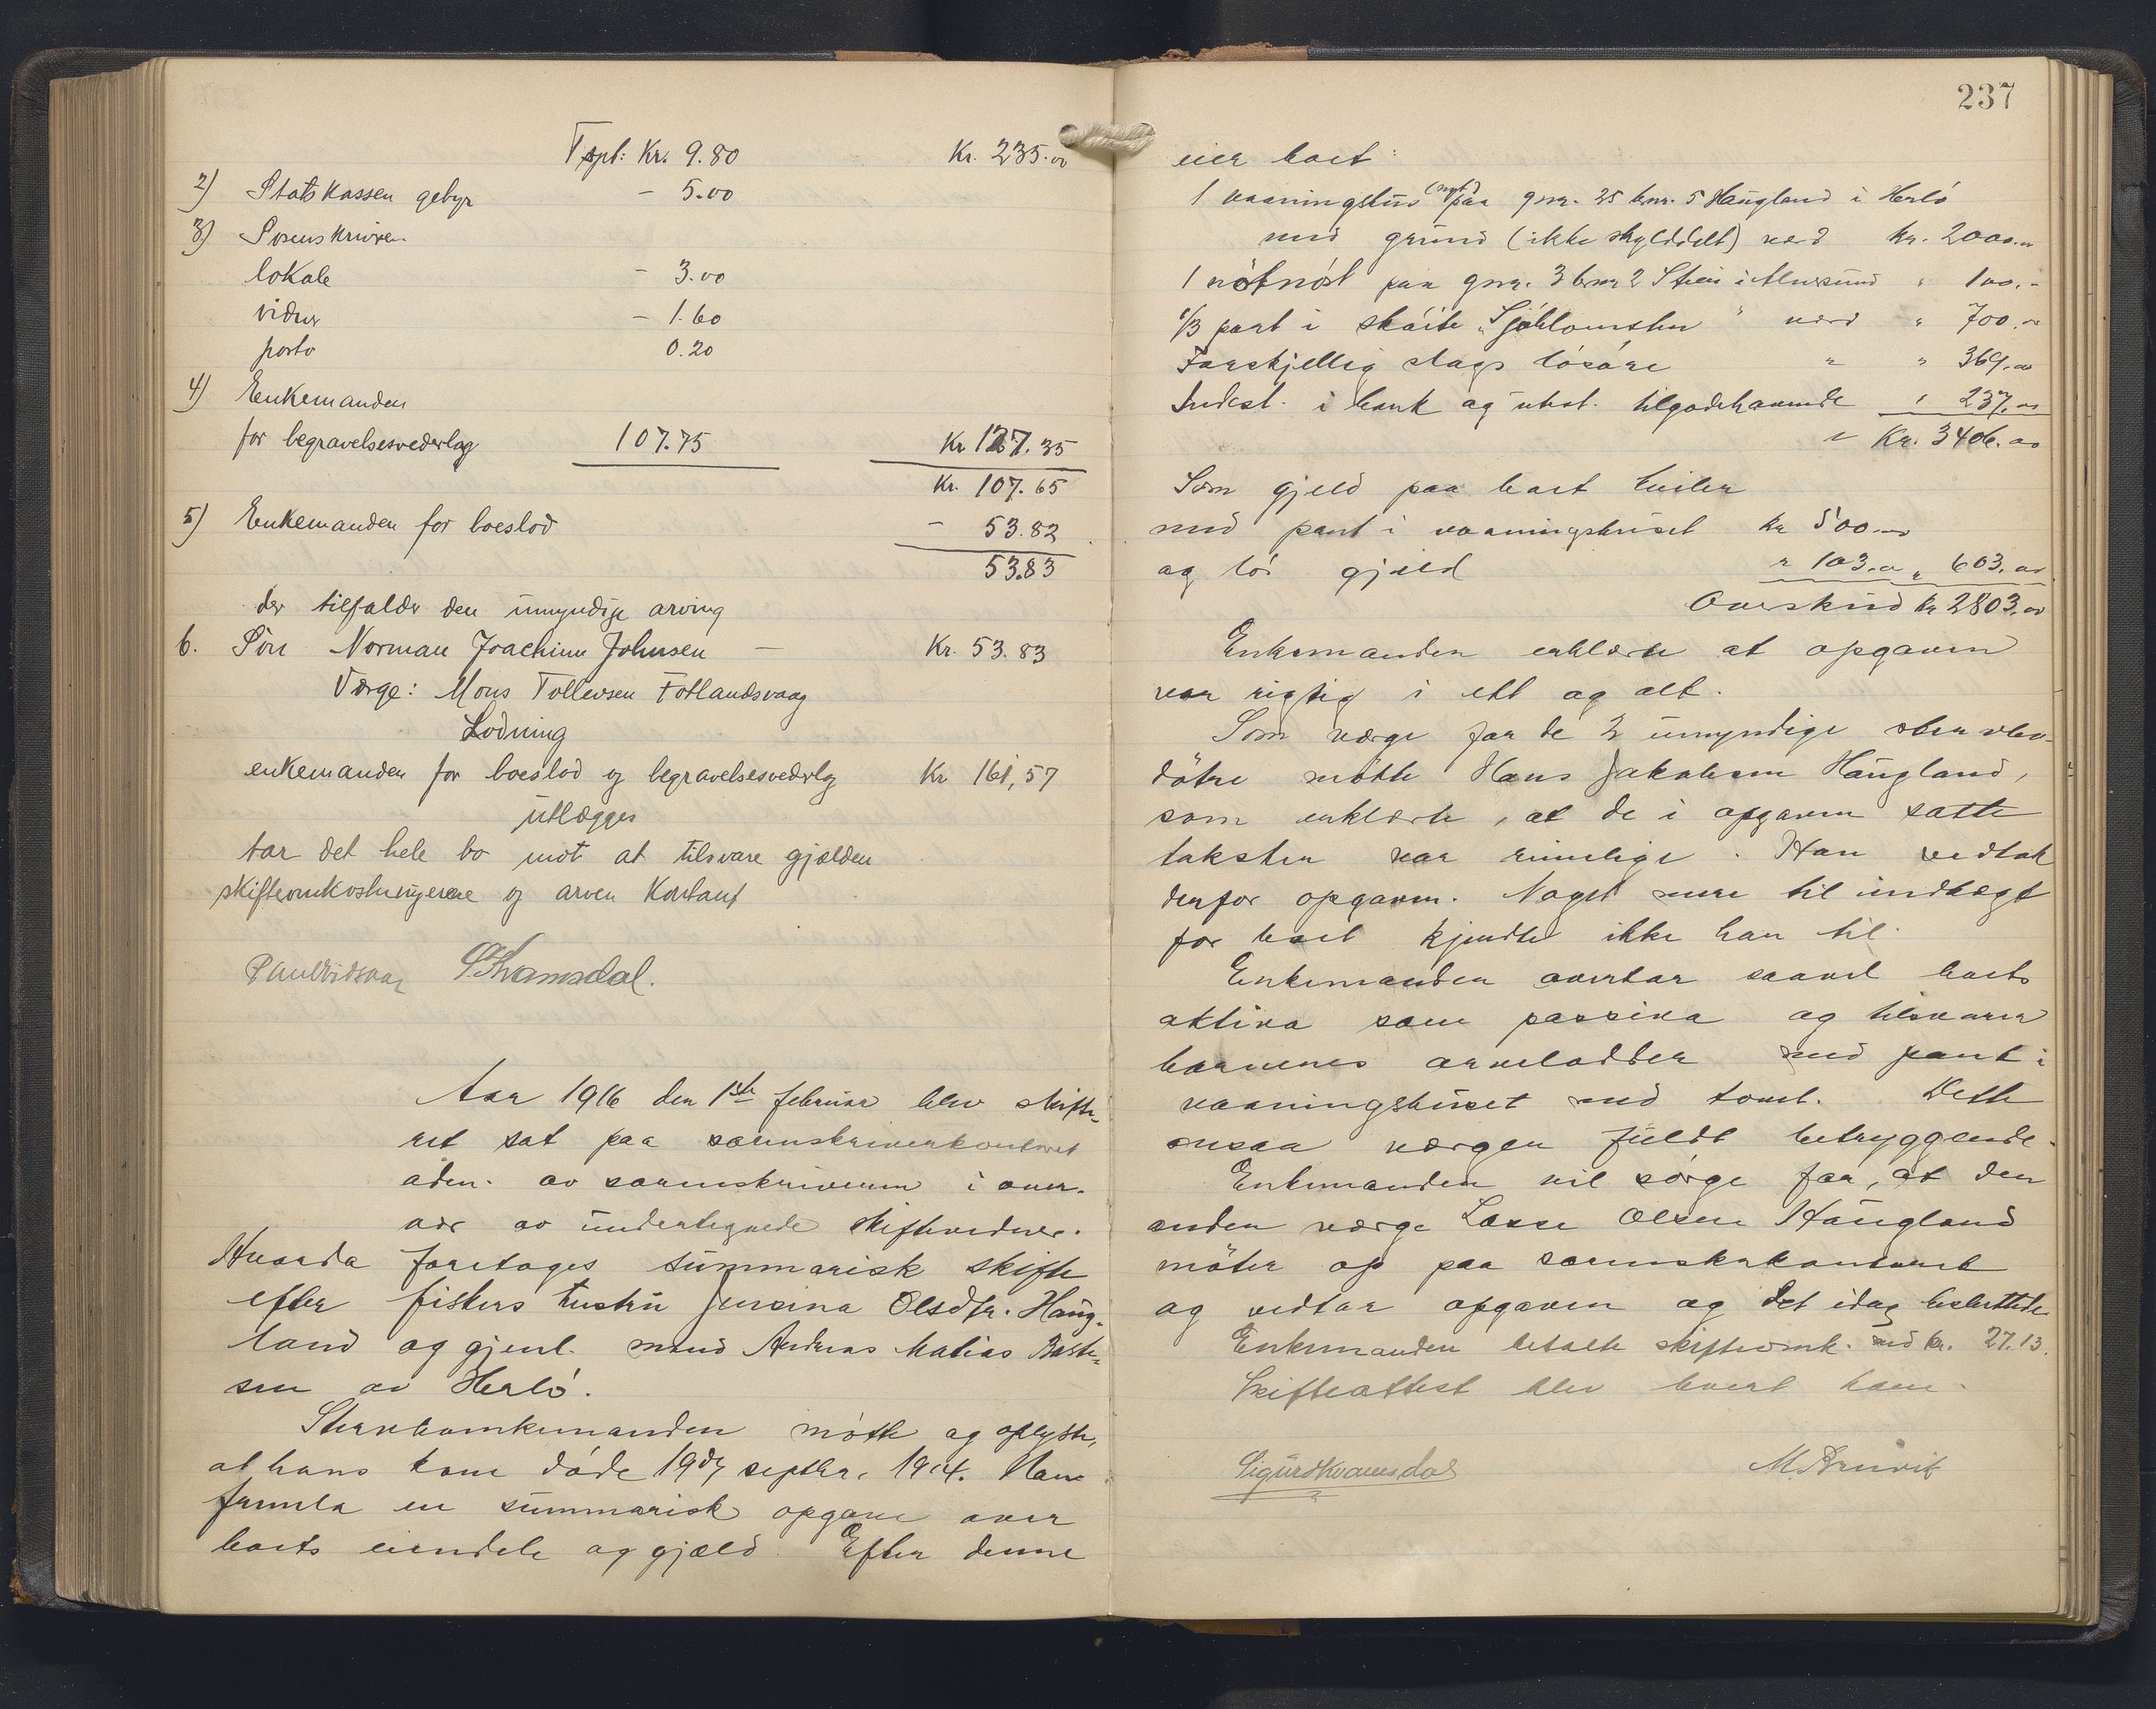 Trspt: Kr. 9.80 Kr. 235.00
2) Statskassen gebyr - 5.00
3) Sorenskriveren
lokale - 3.00
vidner - 1.60
porto 0.20
4) Enkemanden
for begravelsesvederlag 107.75 Kr 127.35
Kr. 107.65
5) Enkemanden for boeslod - 53.82
53.83
der tilfalder den umyndige arving
6. Sön Norman Joachim Johnsen - Kr. 53.83
Værge: Mons Tollevsen Fotlandsvaag
Lodning
enkemanden for boeslod og begravelsesvederlag Kr 161,57
utlægges
tar det hele bo mot at tilsvare gjælden
skifteomkostningerne og arven kontant
S. Kvamsdal.
Aar 1916 den 1ste februar blev skifte-
ret sat paa sorenskriverkontoret
adm. av sorenskriveren i over-
vær av undertegnede skiftevidner.
Hvorda foretoges summarisk skifte
efter fiskers hustru Jensina Olsdtr. Haug-
land og gjenl. mand Andreas Matias Baste-
sen av Herlö.
Stervboenkemanden mötte og oplyste,
at hans kone döde 19de septbr. 1914. Han
fremla en summarisk opgave over
boets eiendele og gjæld. Efter denne
237
eier boet:
1 vaaningshus (nyt) paa gnr. 25 bnr. 5 Haugland i Herlö
med grund (ikke skylddelt) værd kr. 2000.00
1 nötnöst paa gnr. 3 bnr 2 Stein i Alversund " 100.-
1/3 part i sköite "Sjöblomsten" værd " 700.00
Forskjellig slags lösöre " " 369.00
Indest. i bank og utest. tilgodehavende " 237.00
= Kr. 3406.00
Som gjeld paa boet hviler
med pant i vaaningshuset kr 500.00
og lös gjæld " 103.00 " 603.00
Overskud kr 2803.00
Enkemanden erklærte at opgaven
var rigtig i ett og alt.
Som værge for de 2 umyndige sterv-
dötre mötte Hans Jakobsen Haugland,
som erklærte, at de i opgaven satte
takster var rimelige. Han vedtok
derfor opgaven. Noget mere til indtægt
for boet kjendte ikke han til.
Enkemanden overtar saavel boets
aktiva som passiva og tilsvarer
barnenes arvelodder med pant i
vaaningshuset med tomt. Dette
ansaa værgen fuldt betryggende.
Enkemanden vil sörge for, at den
anden værge Lasse Olsen Haugland
möter op paa sorenskrkontoret
og vedtar opgaven og det idag besluttede
Enkemanden betalte skifteomk. med kr. 27.13.
Skifteattest blev levert ham.
Sigurd Kvamsdal